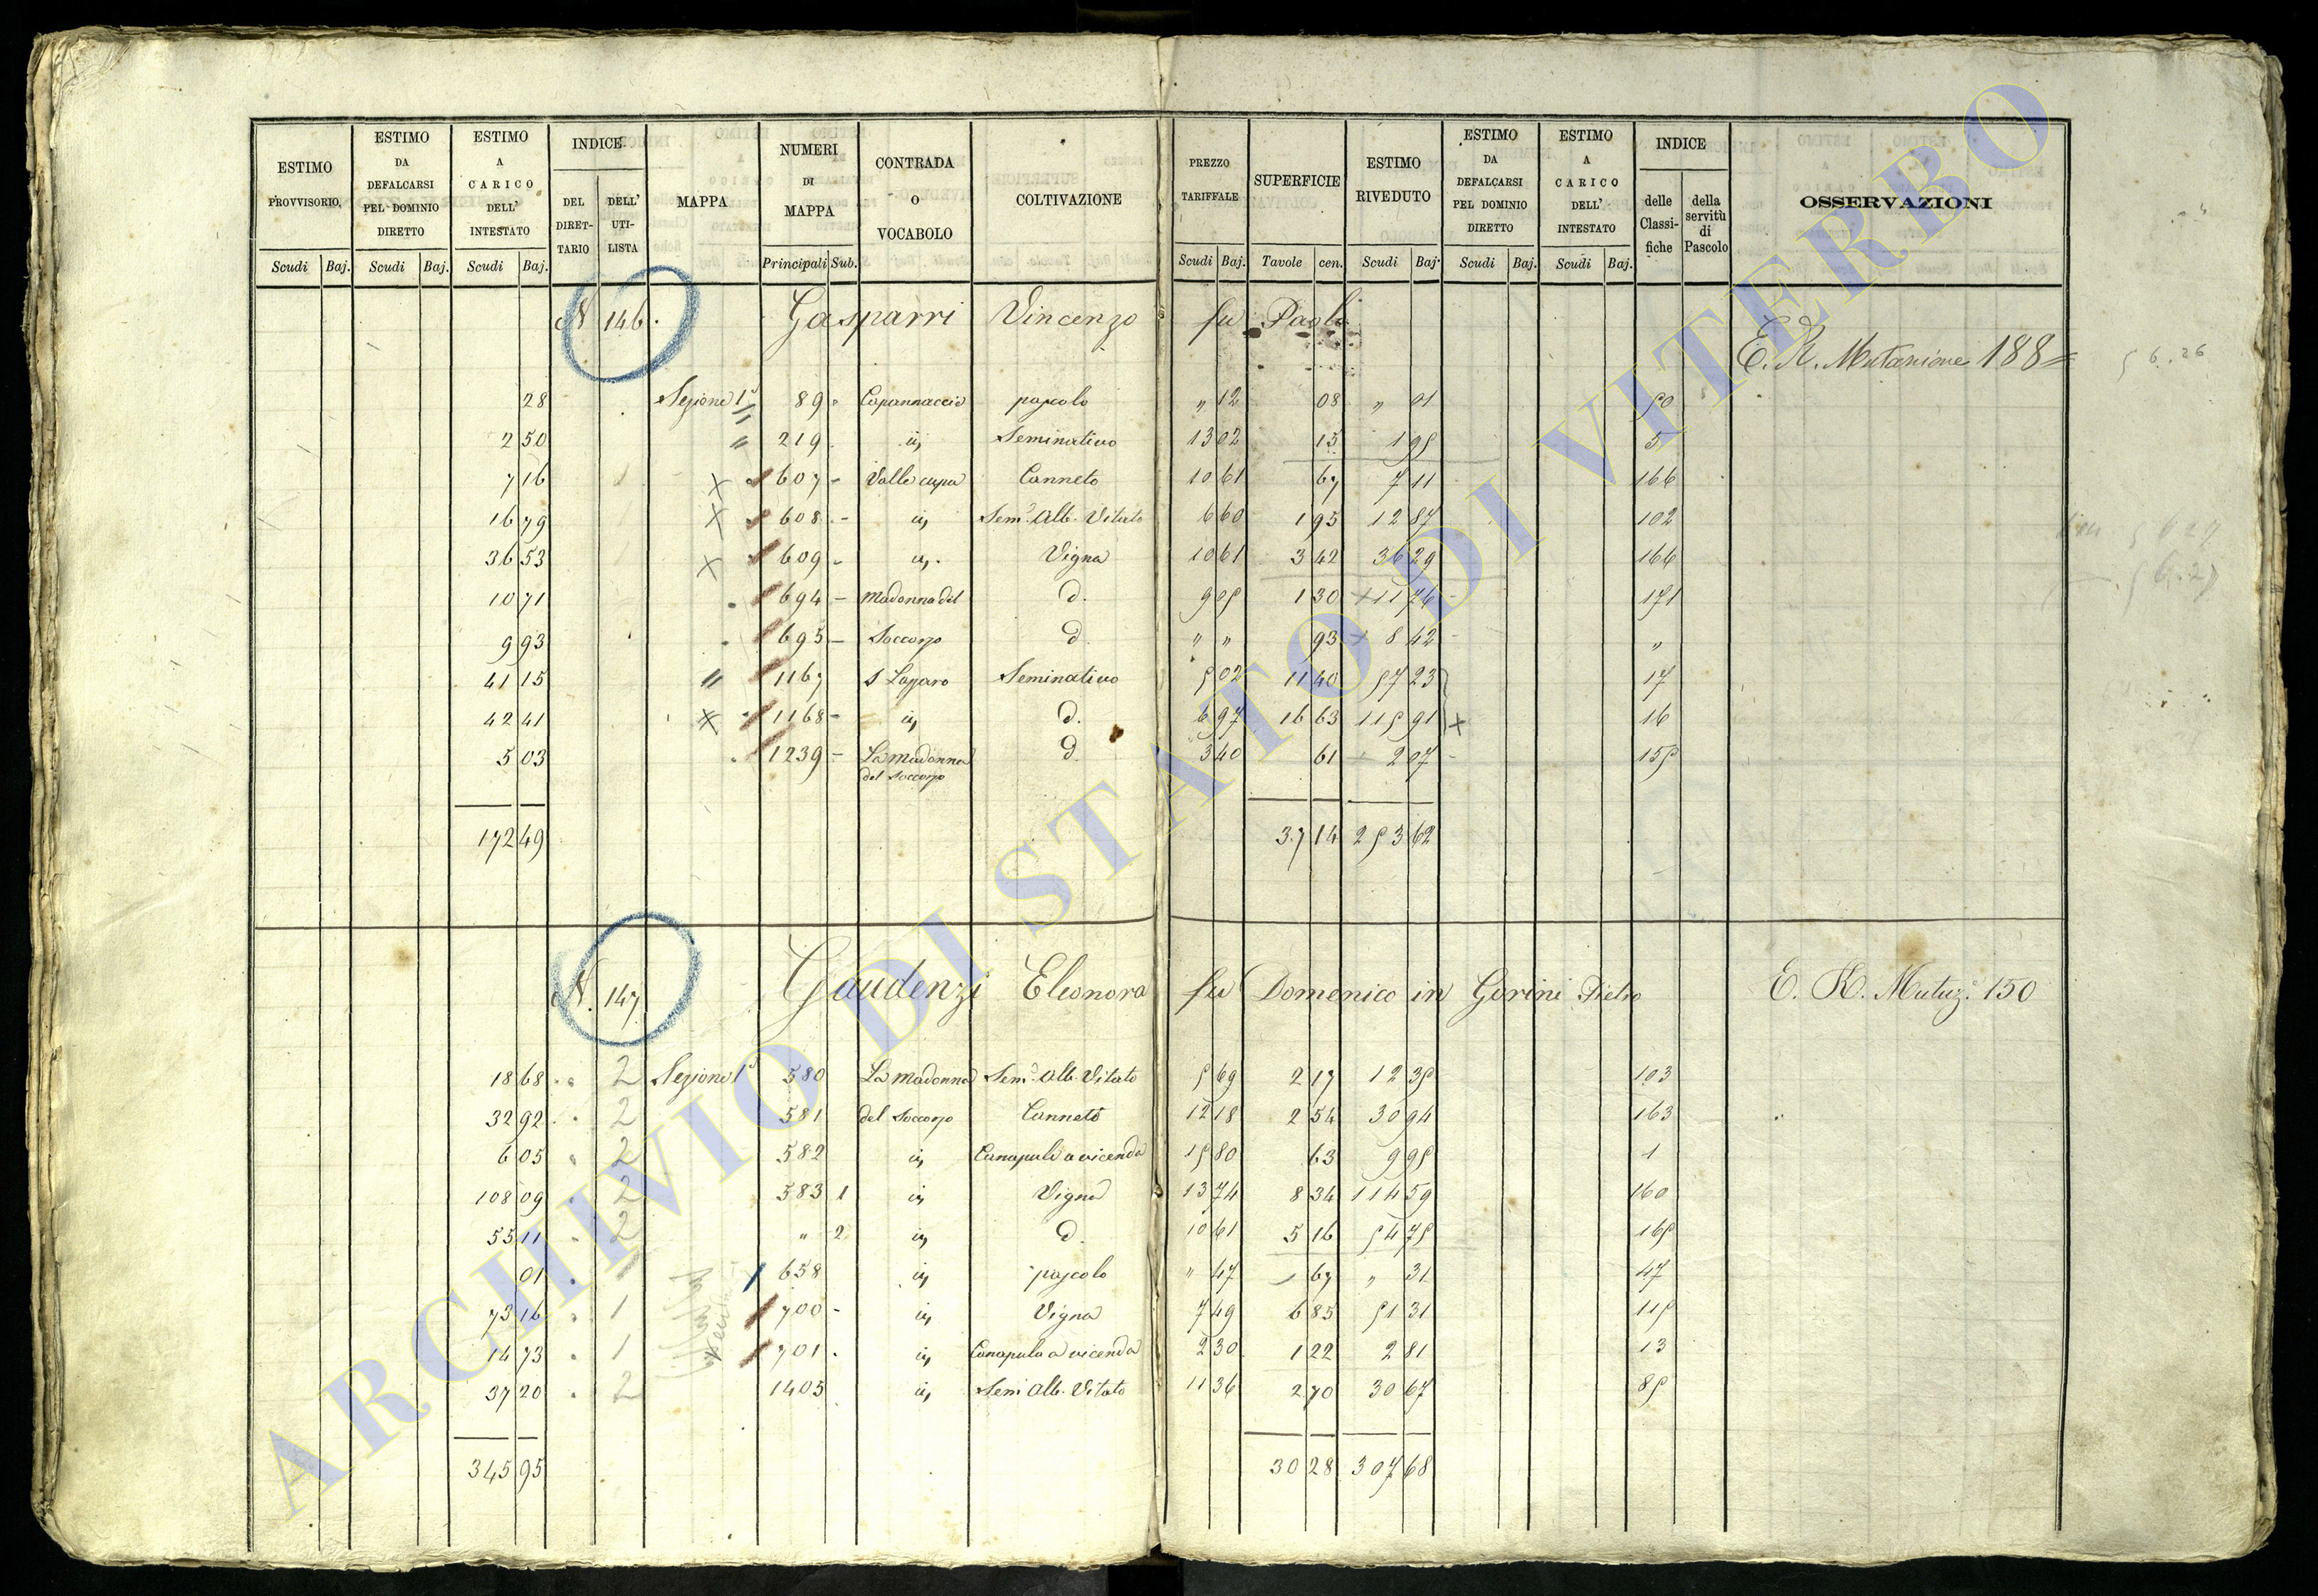 ESTIMO PROVVISORIO, | ESTIMO DA DEFALCARSI PEL DOMINIO DIRETTO | ESTIMO A CARICO DELL' INTESTATO | INDICE | MAPPA | NUMERI DI MAPPA | CONTRADA O VOCABOLO | COLTIVAZIONE | PREZZO TARIFFALE | SUPERFICIE | ESTIMO RIVEDUTO | ESTIMO DA DEFALCARSI PEL DOMINIO DIRETTO | ESTIMO A CARICO DELL' INTESTATO | INDICE | OSSERVAZIONI
DEL DIRET-TARIO | DELL' UTI-LISTA | delle Classi-fiche | della servitù di Pascolo
Scudi | Baj. | Scudi | Baj. | Scudi | Baj. | Principali | Sub. | Scudi | Baj. | Tavole | cen. | Scudi | Baj. | Scudi | Baj. | Scudi | Baj.
N 146. Gasparri Vincenzo fu Paolo
E. R. Mutazione 188
28 | Sezione 1ª | 89 | Capannaccio | pascolo | " 12 | 08 | " 01 | 50
2 50 | " | 219 | id | Seminativo | 13 02 | 15 | 1 95 | 5
7 16 | 607 | Valle cupa | Canneto | 10 61 | 67 | 7 11 | 166
16 79 | 608 | id | Sem.º Alb. Vitato | 6 60 | 1 95 | 12 87 | 102
36 53 | 609 | id. | Vigna | 10 61 | 3 42 | 36 29 | 166
10 71 | 694 | Madonna del | d. | 9 05 | 1 30 | 11 76 | 171
9 93 | 695 | Soccorso | d. | " " | 93 | 8 42 | "
41 15 | " | 1167 | S Lazzaro | Seminativo | 5 02 | 11 40 | 57 23 | 17
42 41 | 1168 | id | d. | 6 97 | 16 63 | 115 91 | 16
5 03 | 1239 | La Madonna del Soccorso | d | 3 40 | 61 | 2 07 | 155
172 49 | 37 14 | 253 62
N. 147. Gaudenzi Eleonora fu Domenico in Gorini Pietro | E. R. Mutaz.e 150
18 68 | 2 | Sezione 1ª | 580 | La Madonna | Sem.º Alb. Vitato | 5 69 | 2 17 | 12 35 | 103
32 92 | 2 | 581 | del Soccorso | Canneto | 12 18 | 2 54 | 30 94 | 163
6 05 | 2 | 582 | id | Canapule a vicenda | 15 80 | 63 | 9 95 | 1
108 09 | 2 | 583 | 1 | id | Vigna | 13 74 | 8 34 | 114 59 | 160
55 11 | 2 | " | 2 | id | d. | 10 61 | 5 16 | 54 75 | 165
01 | 658 | id | pascolo | " 47 | 67 | " 31 | 47
73 16 | 1 | 700 | id | Vigna | 7 49 | 6 85 | 51 31 | 115
14 73 | 1 | 701 | id | Canapula a vicenda | 2 30 | 1 22 | 2 81 | 13
37 20 | 2 | 1405 | id | Sem Alb. Vitato | 11 36 | 2 70 | 30 67 | 85
345 95 | 30 28 | 307 68
ARCHIVIO DI STATO DI VITERBO